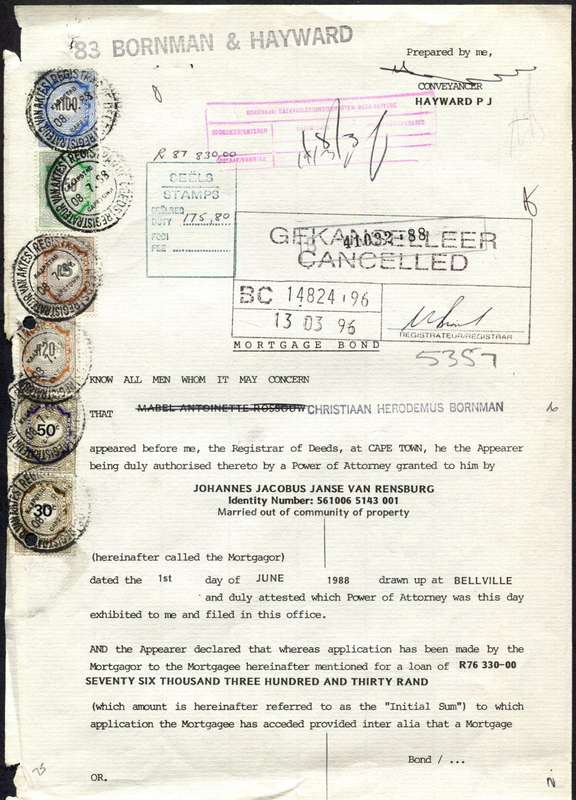 '83 BORNMAN & HAYWARD
Prepared by me,
CONVEYANCER
HAYWARD P J
R 87 830,00
SEËLS
STAMPS
DUTY 175,80
FOOI
FEE
GEKANSELLEER
CANCELLED
BC 14824 · 96
13 03 96
REGISTRATEUR/REGISTRAR
5357
MORTGAGE BOND
KNOW ALL MEN WHOM IT MAY CONCERN
THAT MABEL ANTOINETTE ROSSOUW CHRISTIAAN HERODEMUS BORNMAN
appeared before me, the Registrar of Deeds, at CAPE TOWN, he the Appearer
being duly authorised thereto by a Power of Attorney granted to him by
JOHANNES JACOBUS JANSE VAN RENSBURG
Identity Number: 561006 5143 001
Married out of community of property
(hereinafter called the Mortgagor)
dated the 1st day of JUNE 1988 drawn up at BELLVILLE
and duly attested which Power of Attorney was this day
exhibited to me and filed in this office.
AND the Appearer declared that whereas application has been made by the
Mortgagor to the Mortgagee hereinafter mentioned for a loan of R76 330-00
SEVENTY SIX THOUSAND THREE HUNDRED AND THIRTY RAND
(which amount is hereinafter referred to as the "Initial Sum") to which
application the Mortgagee has acceded provided inter alia that a Mortgage
Bond / ...
OR.
R100
R20
50c
30c